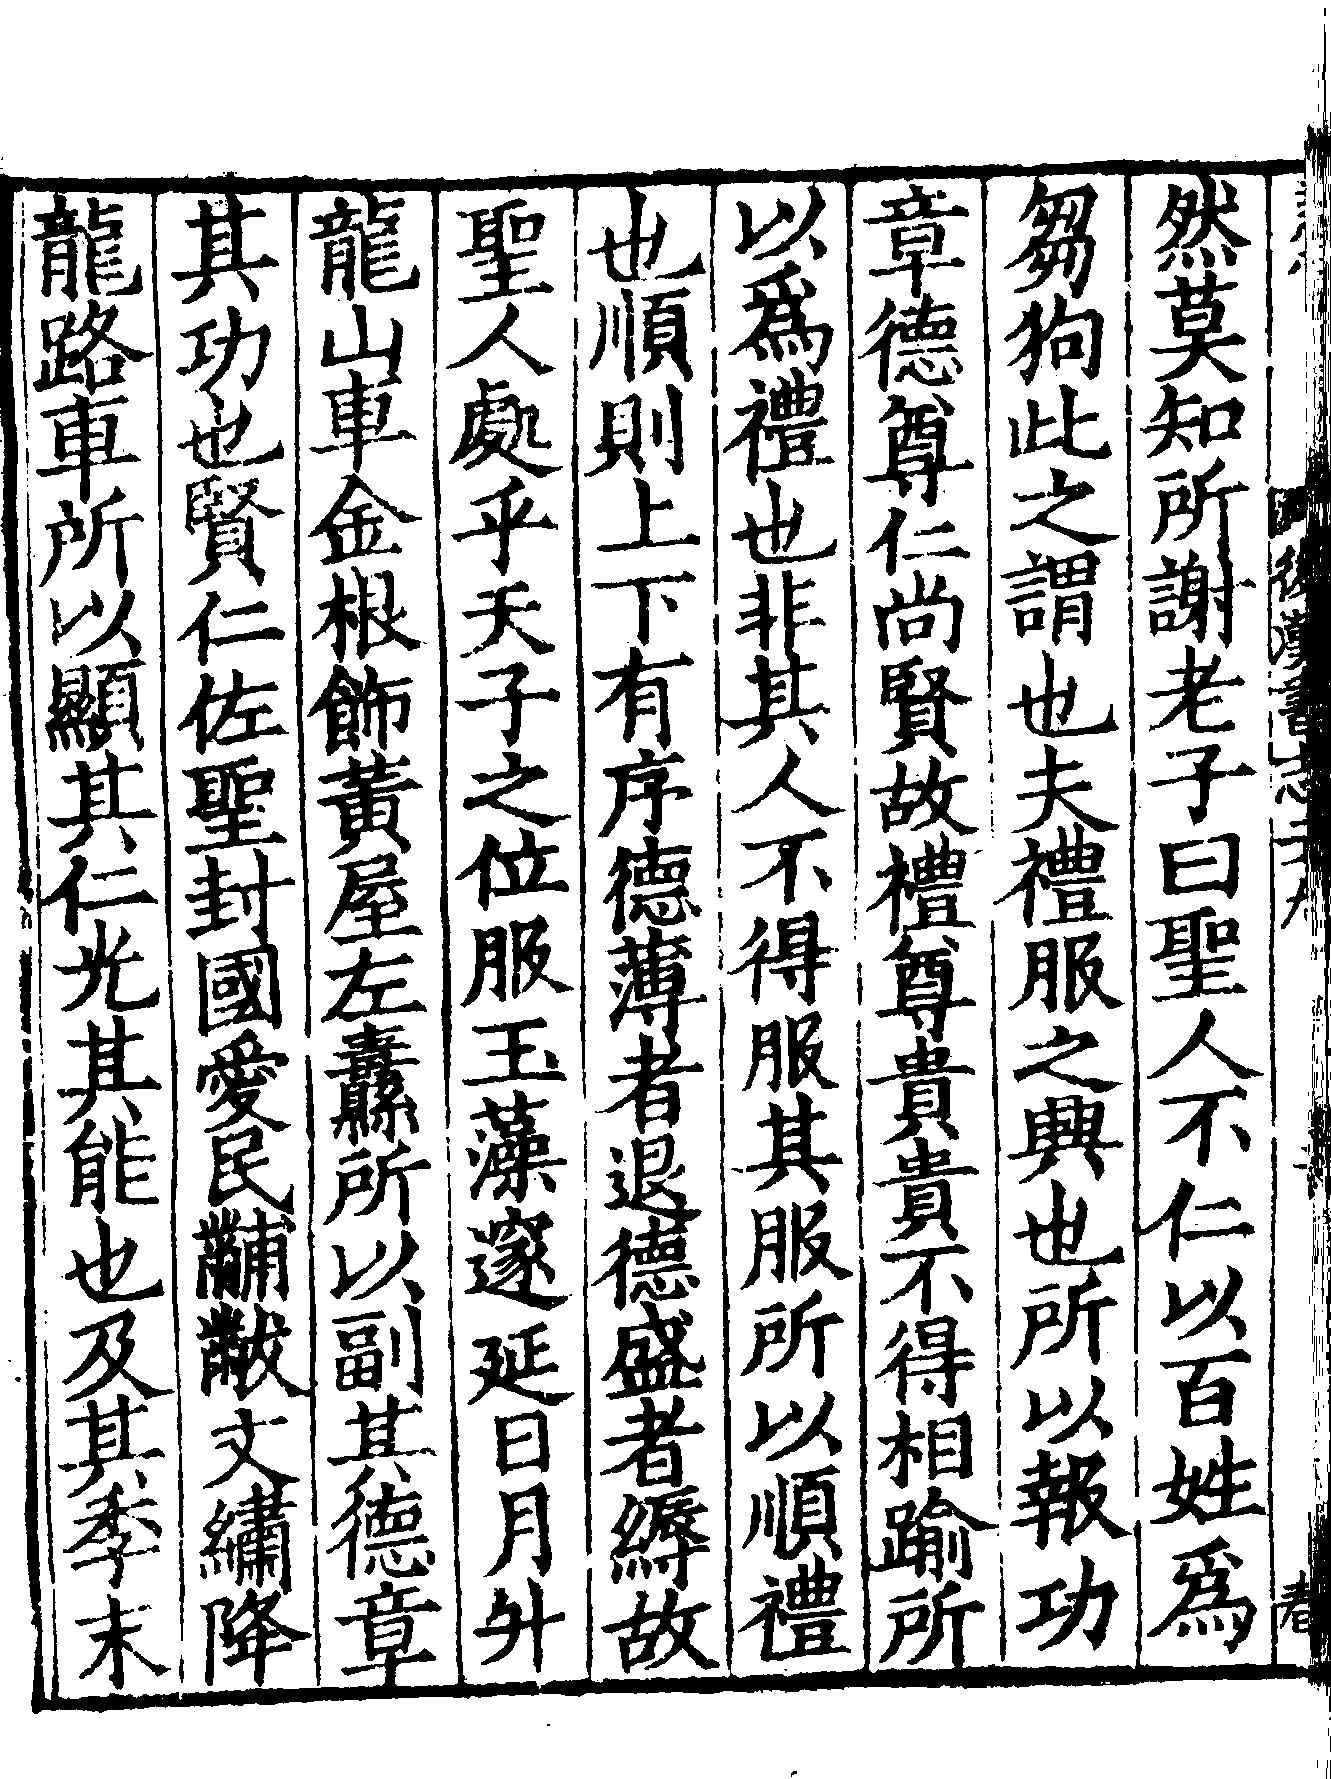 後漢書志二十九
然莫知所謝老子曰聖人不仁以百姓爲
芻狗此之謂也夫禮服之興也所以報功
章德尊仁尚賢故禮尊貴貴不得相踰所
以爲禮也非其人不得服其服所以順禮
也順則上下有序德薄者退德盛者縟故
聖人處乎天子之位服玉藻邃延日月升
龍山車金根飾黃屋左纛所以副其德章
其功也賢仁佐聖封國愛民黼黻文繡降
龍路車所以顯其仁光其能也及其季末